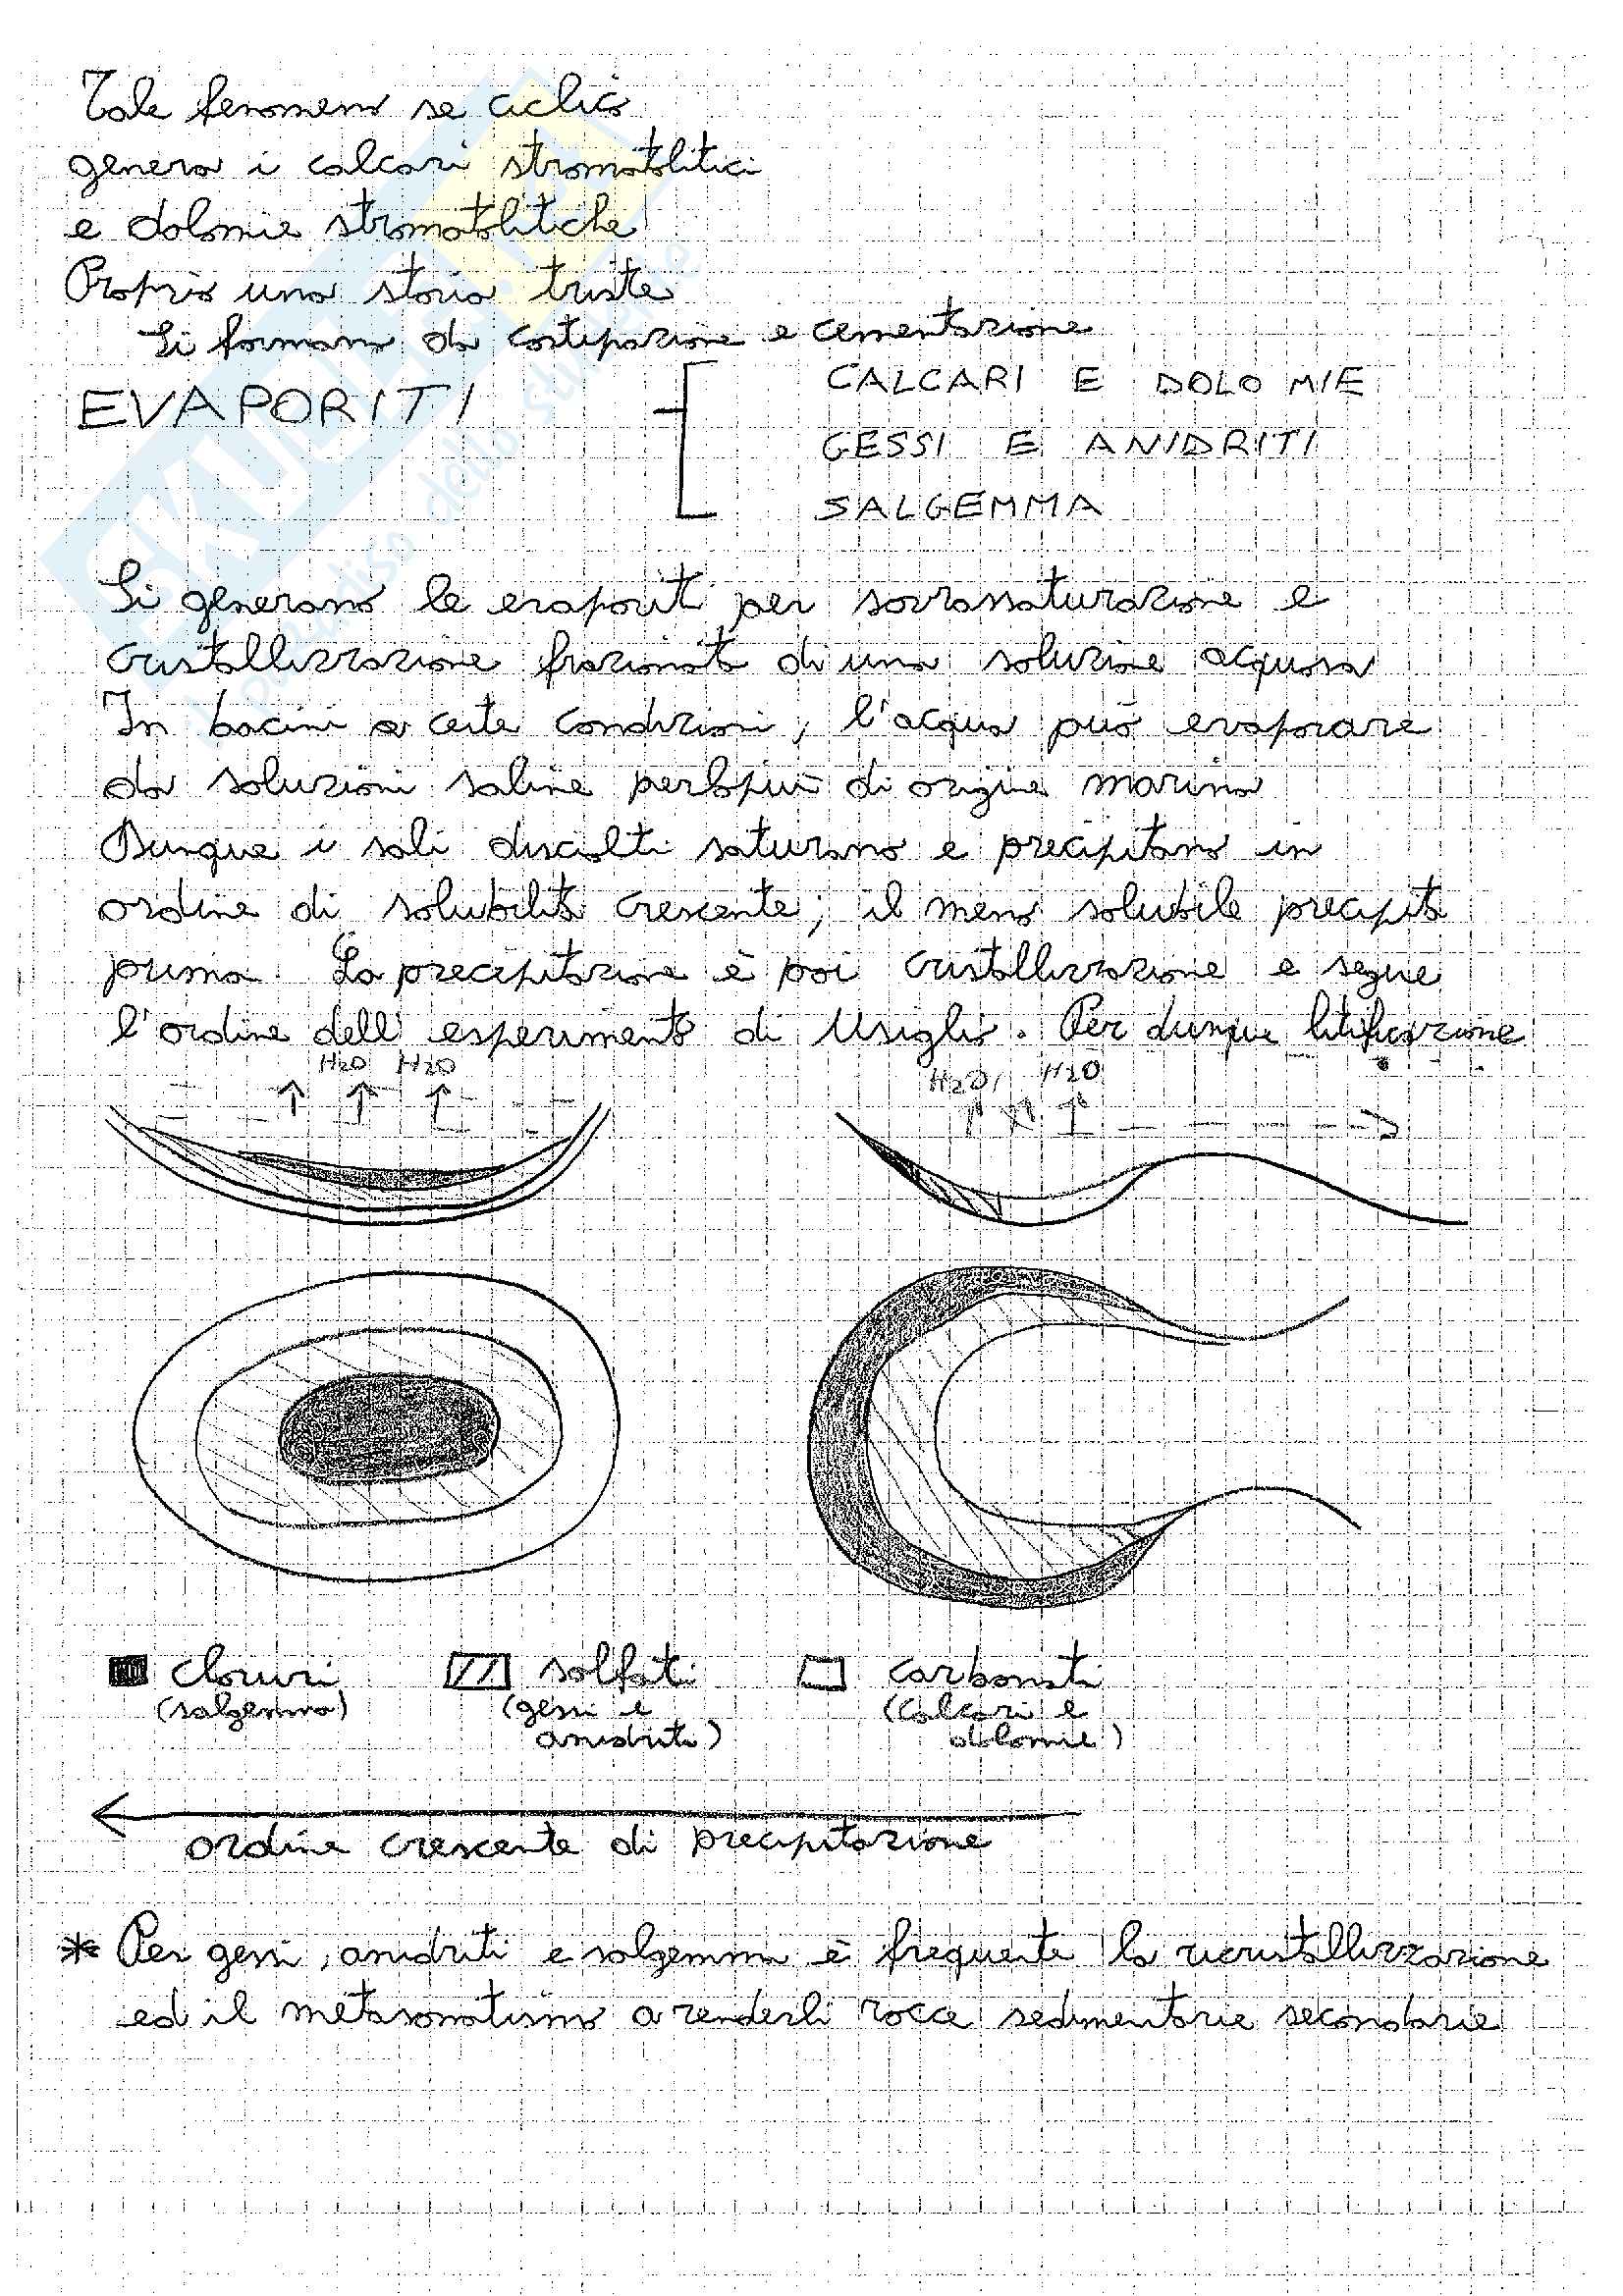 Tale fenomeno se ciclico
genera i calcari stromatolitici
e dolomie stromatolitiche
Proprio una storia triste
Si formano da costipazione e cementazione
EVAPORITI
CALCARI E DOLOMIE
GESSI E ANIDRITI
SALGEMMA
Si generano le evaporiti per sovrassaturazione e
cristallizzazione frazionata di una soluzione acquosa
In bacini a certe condizioni, l'acqua può evaporare
da soluzioni saline perlopiù di origine marina
Dunque i sali disciolti saturano e precipitano in
ordine di solubilità crescente; il meno solubile precipita
prima. La precipitazione è poi cristallizzazione e segue
l'ordine dell'esperimento di Usiglio. Per dunque litificazione
H2O H2O
H2O H2O
cloruri solfati carbonati
(salgemma) (gessi e (calcari e
anidriti) dolomie)
ordine crescente di precipitazione
* Per gessi, anidriti e salgemma è frequente la ricristallizzazione
ed il metasomatismo a renderli rocce sedimentarie secondarie